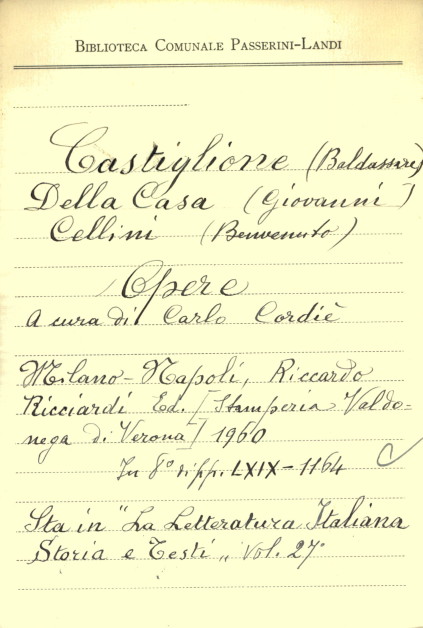 BIBLIOTECA COMUNALE PASSERINI-LANDI
Castiglione (Baldassare)
Della Casa (Giovanni)
Cellini (Benvenuto)
Opere
A cura di Carlo Cordiè
Milano - Napoli, Riccardo
Ricciardi Ed. [Stamperia Valdo-
nega di Verona] 1960
In 8° di pp. LXIX - 1164
Sta in "La Letteratura Italiana
Storia e Testi„ Vol. 27°